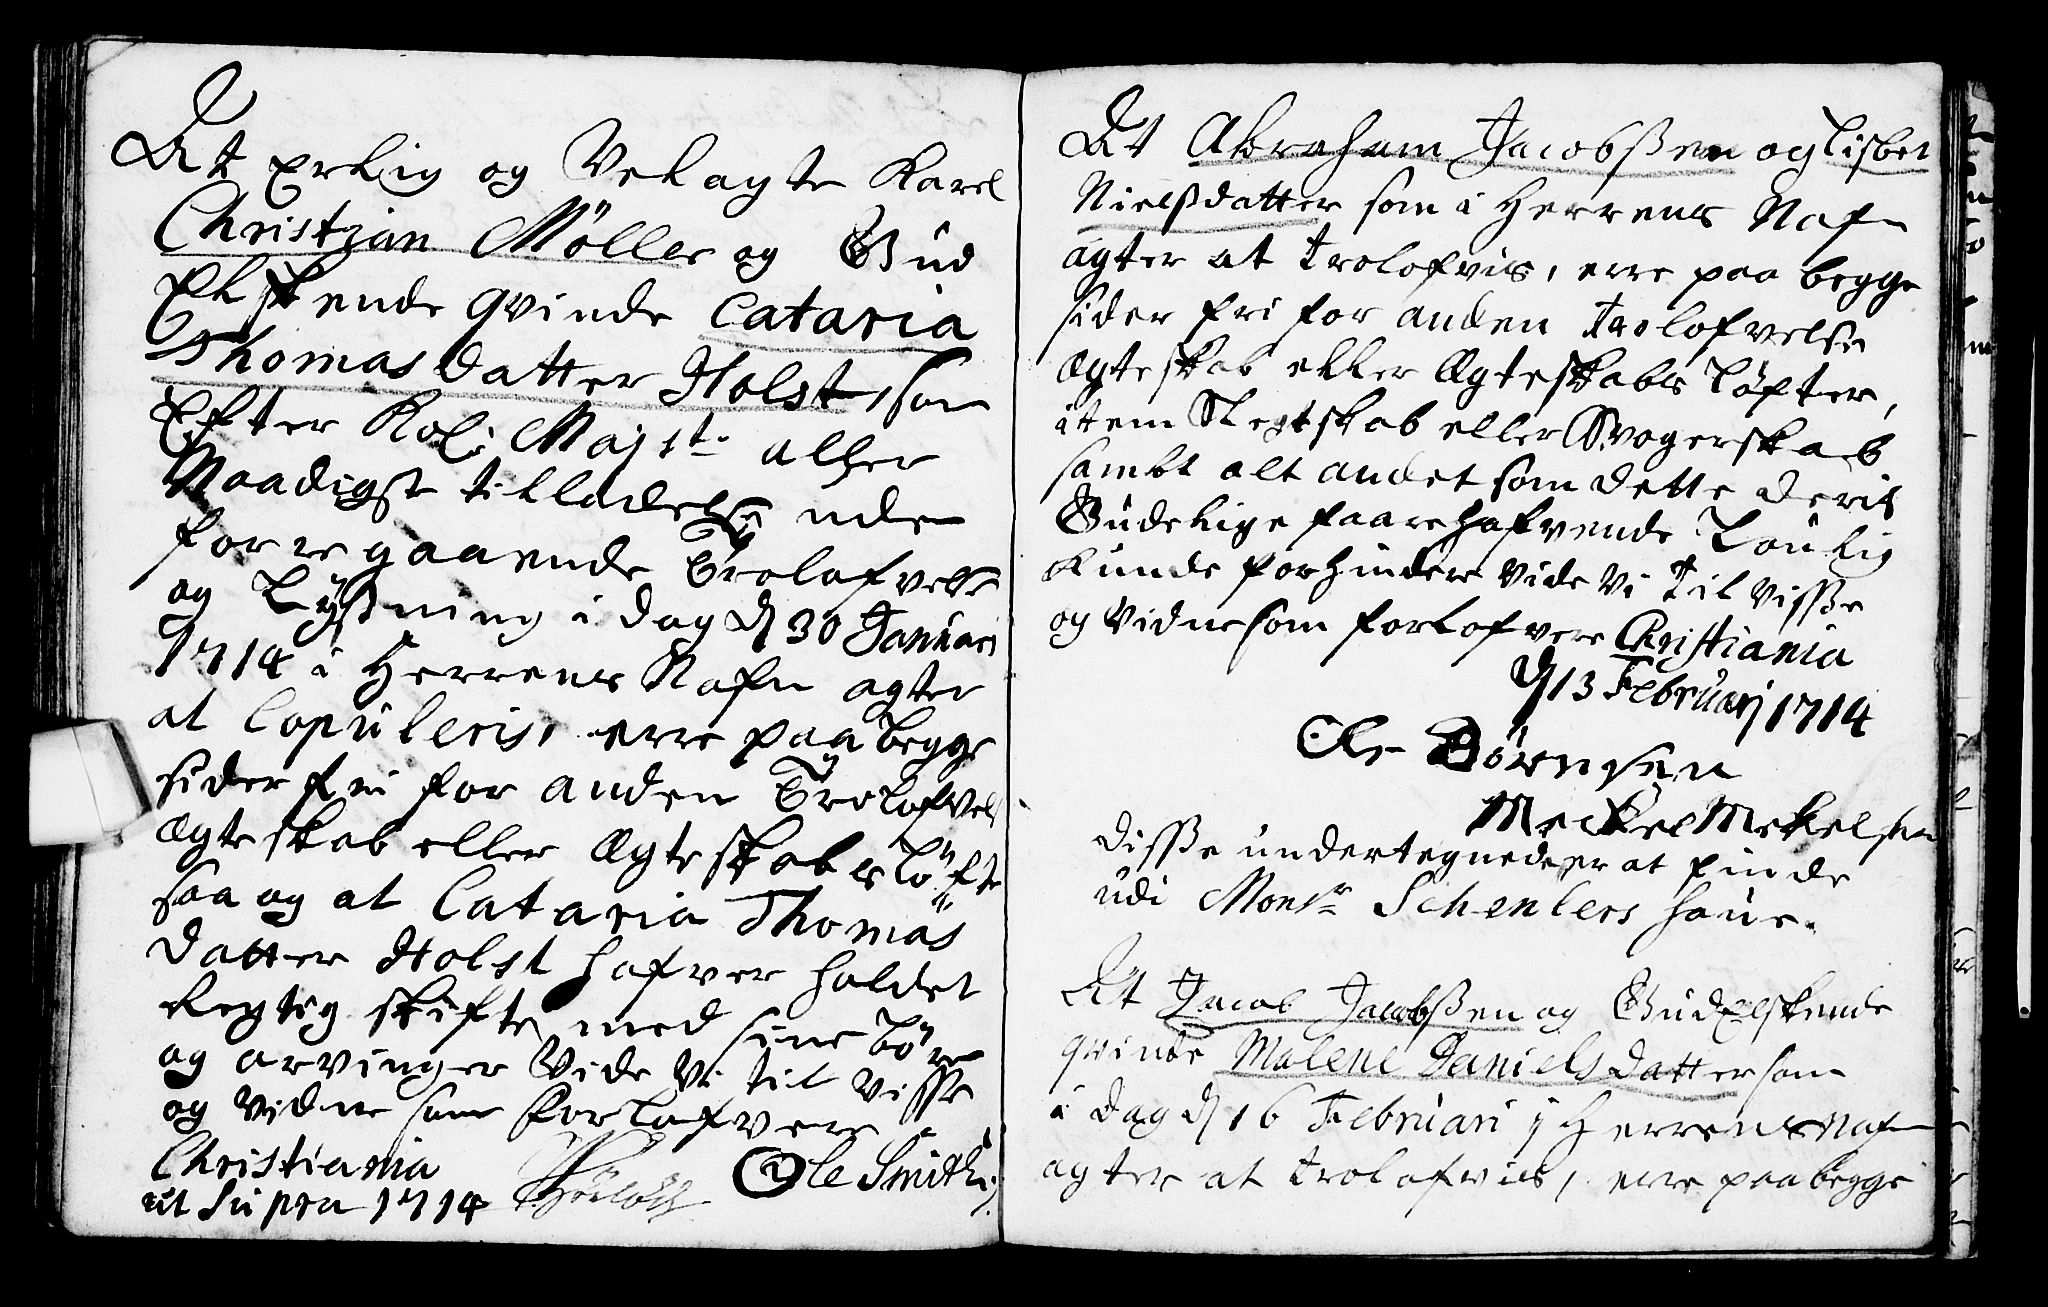 At Erlig og Velagte Karel
Christian Möller og Gud
Elskende qvinde Cataria
Thomas datter Holst, som
Efter Kol: Majst: aller
Naadigste tilladelse uden
forregaaende Trolofvelse
og Lysning i dag d 30 Januari
1714 i Herrens Nafn agter
at Copuleris, erre paa begge
sider fri for anden Trolofvels
ægteskab eller Ægteskabs Löfte
saa og at Cataria Thomas
datter Holst hafver holdet
Regtig skifte med sine Börn
og arvinger Vide Vi til Visse
og Vidne som forlofvere
Christiania
ut Supra 1714 Ole Smith
At Abraham Jacobßen og Lisbet
Nielßdatter som i Herrens Nafn
agter at trolofvis, erre paa begge
sider fri for anden trolofvelse
Ægteskab eller Ægteskabs Löfter,
item Slegtskab eller Svogerskab
sambt alt andet som dette deris
Gudelige faarehafvende Lonlig
kunde forhindere Vide Vi til Visße
og Vidne som forlofvere Christiania
d 13 Februarj 1714
Ole Börnsen
Meckel Mekelsen
disße undertegnede er at finde
udi Monsr Schenlers huus.
At Jacob Jacobßen og Gud Elskende
qvinde Malene Daniels datter som
i dag d 16 Februari i Herrens Nafn
agter at trolofvis, erre paa begge